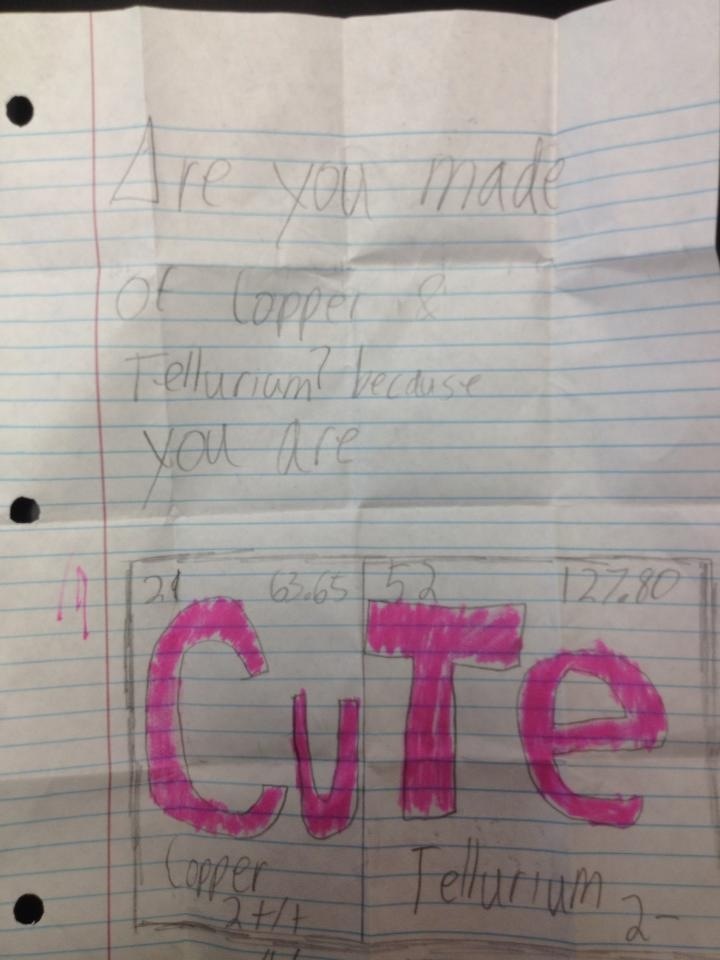 Are you made
of Copper &
Tellurium? because
you are
21 63.65 52 127.80
CuTe
Copper Tellurium
2+/+ 2-